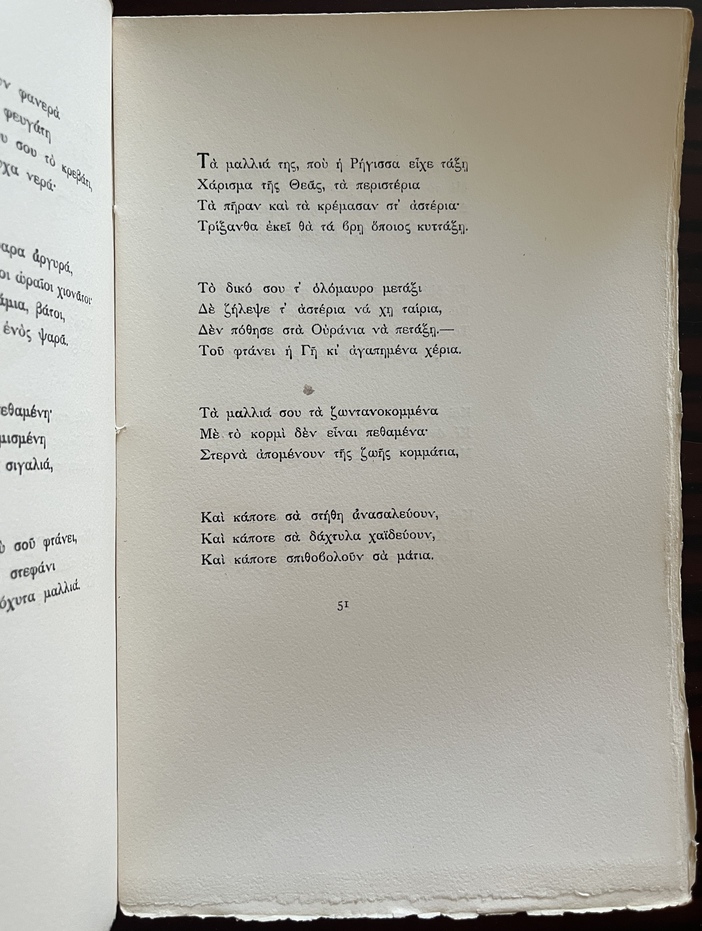 φανερά
φευγάτη
σου τὸ κρεβάτι,
νερά·
ἀργυρά,
ὡραῖοι χιονάτοι·
βάτοι,
ἑνὸς ψαρᾶ.
σιγαλιά,
σοῦ φτάνει,
στεφάνι
μαλλιά.
Τὰ μαλλιά της, ποὺ ἡ Ρήγισσα εἶχε τάξη
Χάρισμα τῆς Θεᾶς, τὰ περιστέρια
Τὰ πῆραν καὶ τὰ κρέμασαν στ' ἀστέρια·
Τρίξανθα ἐκεῖ θὰ τά βρῃ ὅποιος κυττάξῃ.
Τὸ δικό σου τ' ὁλόμαυρο μετάξι
Δὲ ζήλεψε τ' ἀστέρια νά χῃ ταίρια,
Δὲν πόθησε στὰ Οὐράνια νὰ πετάξῃ.—
Τοῦ φτάνει ἡ Γῆ κι' ἀγαπημένα χέρια.
Τὰ μαλλιά σου τὰ ζωντανοκομμένα
Μὲ τὸ κορμὶ δὲν εἶναι πεθαμένα·
Στερνὰ ἀπομένουν τῆς ζωῆς κομμάτια,
Καὶ κάποτε σὰ στήθη ἀνασαλεύουν,
Καὶ κάποτε σὰ δάχτυλα χαϊδεύουν,
Καὶ κάποτε σπιθοβολοῦν σὰ μάτια.
51